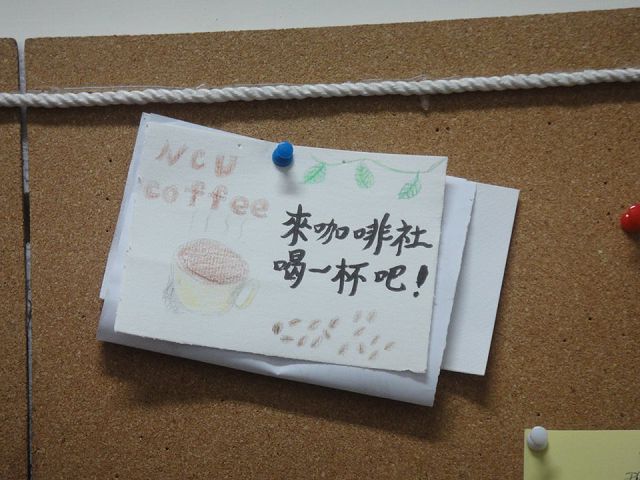 NCU
coffee
來咖啡社
喝一杯吧!